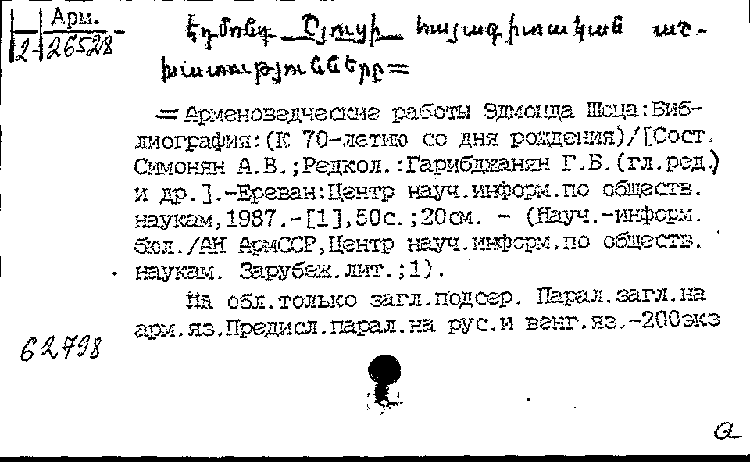 Арм.
2-26528
Էդմոնդ Շյուցի հայագիտական աշ-
խատությունները=
=Арменоведческие работы Эдмонда Шюца:Биб-
лиография:(К 70-летию со дня рождения)/[Сост.
Симонян А.В.;Редкол.:Гарибджанян Г.Б.(гл.ред.)
и др.].-Ереван:Центр науч.информ.по обществ.
наукам,1987.-[1],50с.;20см. - (Науч.-информ.
бюл./АН АрмССР,Центр науч.информ.по обществ.
наукам. Зарубеж.лит.;1).
На обл.только загл.подсер. Парал.загл.на
арм.яз.Предисл.парал.на рус.и венг.яз.-200экз
62798